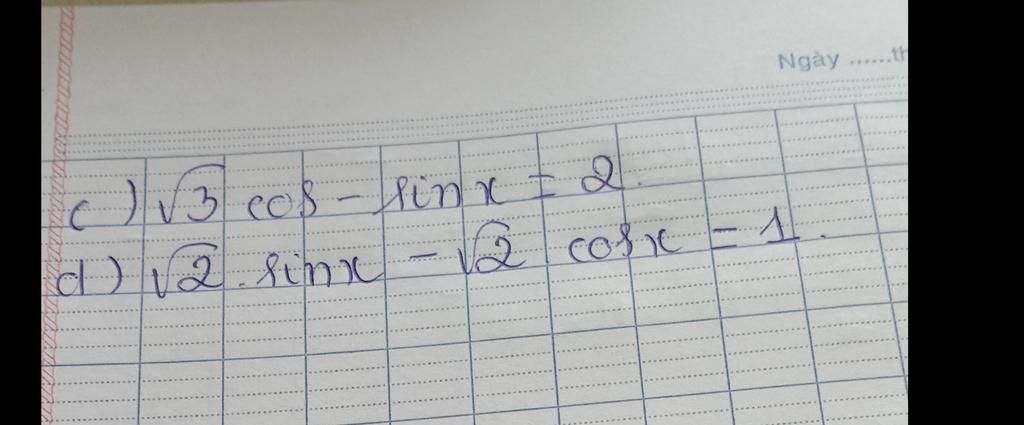 Ngày ......th
c) √3 cos - sinx = 2.
d) √2. sinx - √2 cosx = 1.